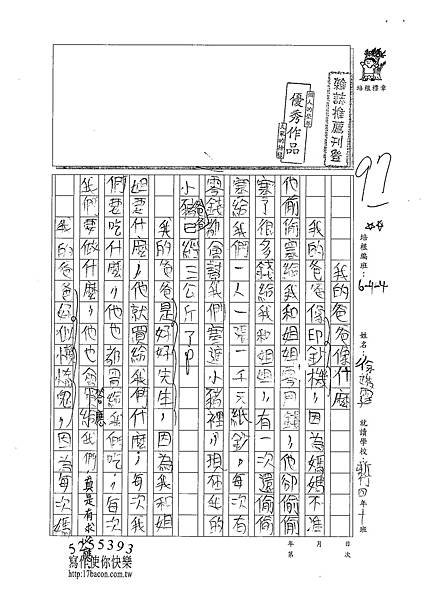 雜誌推薦刊登
個人的最愛
優秀作品
大家的好榜樣
培根標章
97
培根編班：
6-4-4
姓名：
就讀學校：
新竹四年十班
年 月 日
第 次
我的爸爸像什麼
我的爸爸像印鈔機，因為媽媽不准
他偷偷拿給我和姐姐零用錢，他卻偷偷
拿了很多錢給我和姐姐，有一次還偷偷
拿給我們一人一張一千元紙鈔，每次有
零錢都會讓我們塞進小豬裡，現在我的
小豬爸爸已經三公斤了！
我的爸爸是好好先生，因為我和姐
姐要什麼，他就買給我們什麼，每次我
們要吃什麼，他也都買給我們吃，每次
我們要做什麼，他也會答應給我們，真是有求必應
我的爸爸好似懶惰鬼，因為每次媽
5255393
寫作使你快樂
http://17bacon.com.tw/